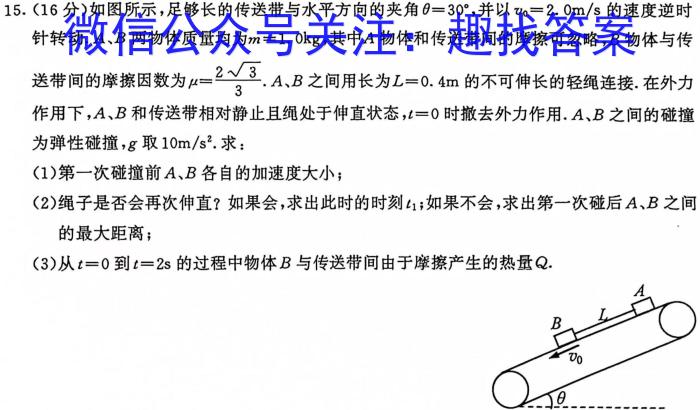 15.(16 分)如图所示,足够长的传送带与水平方向的夹角θ=30°,并以v₀=2.0m/s 的速度逆时
针转动,A、B两物体质量均为m=1.0kg,其中A物体和传送带间的摩擦可忽略,B物体与传
微信公众号关注:趣找答案
送带间的摩擦因数为μ=2√3/3.A、B之间用长为L=0.4m 的不可伸长的轻绳连接.在外力
作用下,A、B和传送带相对静止且绳处于伸直状态,t=0 时撤去外力作用.A、B之间的碰撞
为弹性碰撞,g 取10m/s².求:
(1)第一次碰撞前 A、B 各自的加速度大小;
(2)绳子是否会再次伸直?如果会,求出此时的时刻t₁;如果不会,求出第一次碰后A、B之间
的最大距离;
(3)从t=0 到t=2s 的过程中物体B 与传送带间由于摩擦产生的热量Q.
A
L
B
v₀
θ